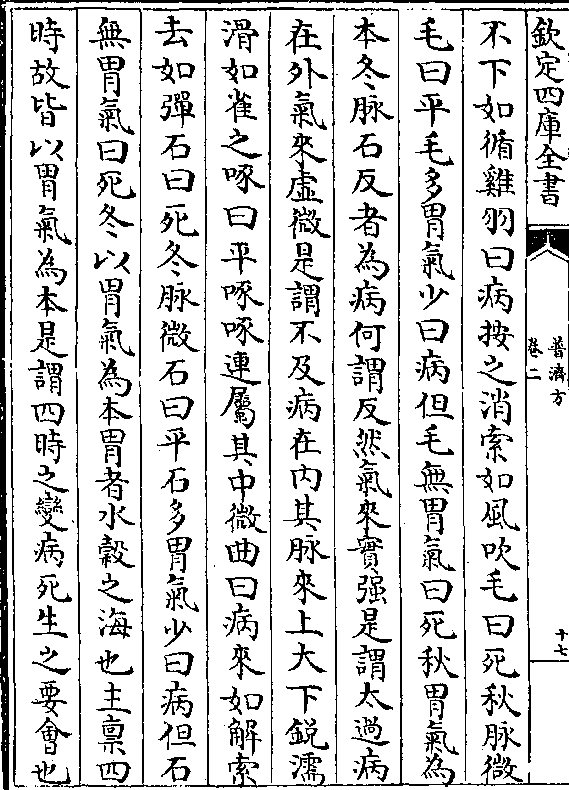 欽定四庫全書
普濟方
卷二
十七
不下如循雞羽曰病按之消索如風吹毛曰死秋脉微
毛曰平毛多胃氣少曰病但毛無胃氣曰死秋胃氣為
本冬脉石反者為病何謂反然氣來實强是謂太過病
在外氣來虛微是謂不及病在内其脉來上大下鋭濡
滑如雀之啄曰平啄啄連屬其中微曲曰病來如解索
去如彈石曰死冬脉微石曰平石多胃氣少曰病但石
無胃氣曰死冬以胃氣為本胃者水穀之海也主禀四
時故皆以胃氣為本是謂四時之變病死生之要會也